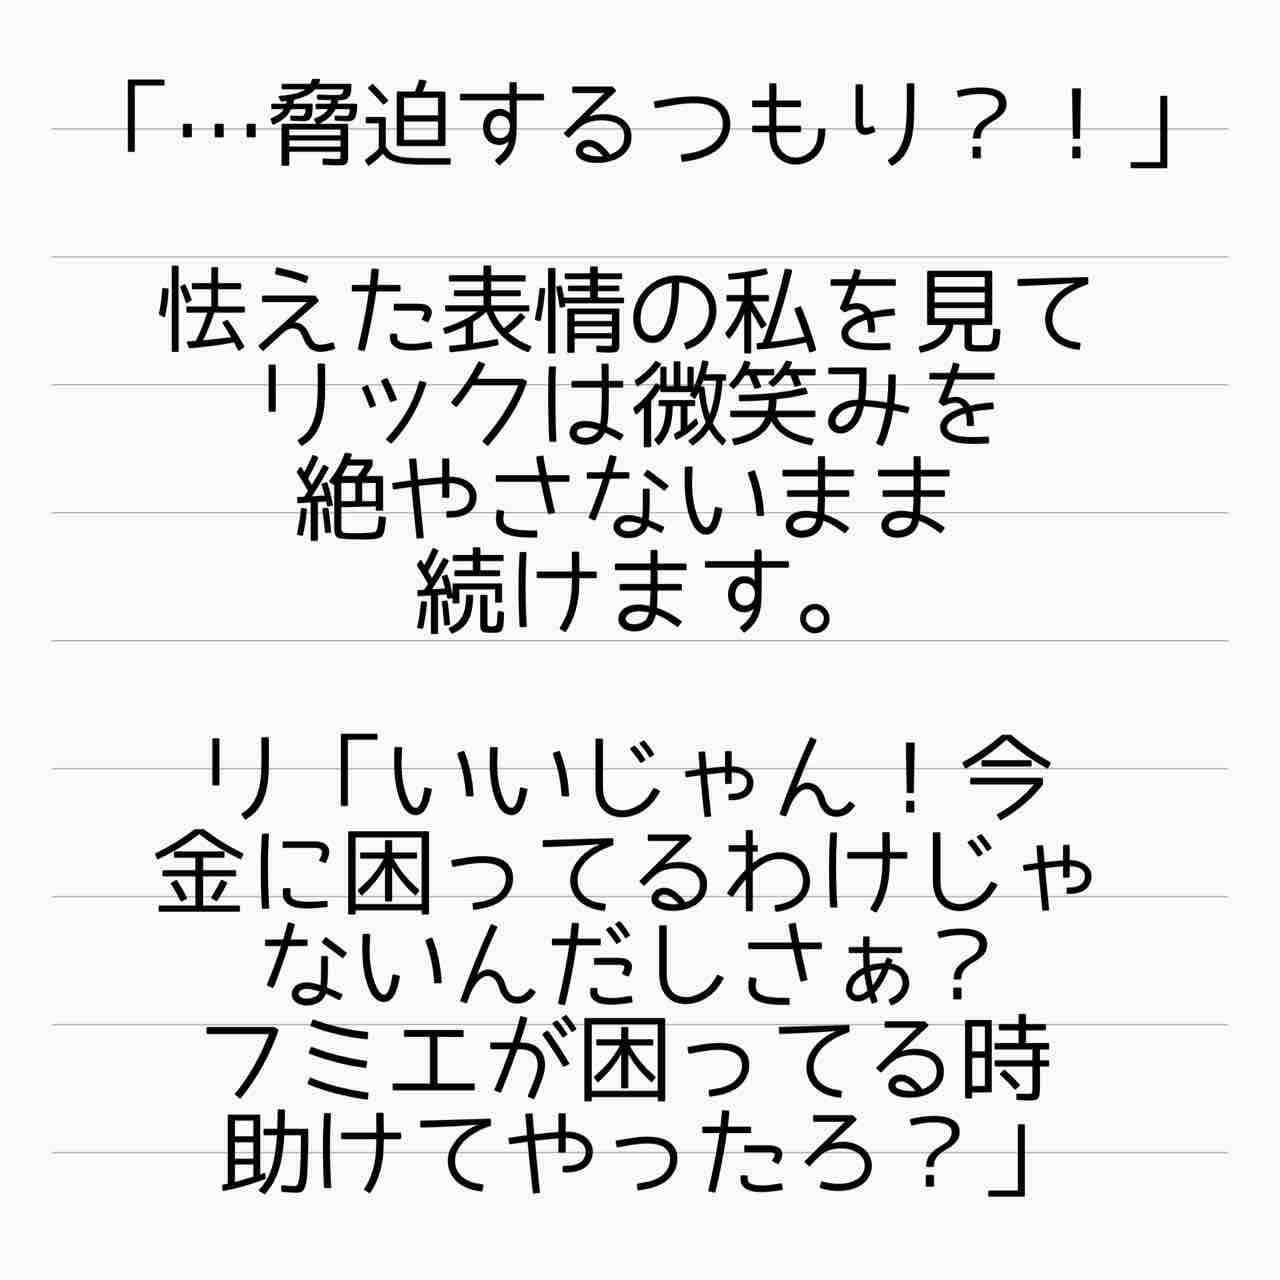 「…脅迫するつもり？！」
怯えた表情の私を見て
リックは微笑みを
絶やさないまま
続けます。
リ「いいじゃん！今
金に困ってるわけじゃ
ないんだしさぁ？
フミエが困ってる時
助けてやったろ？」